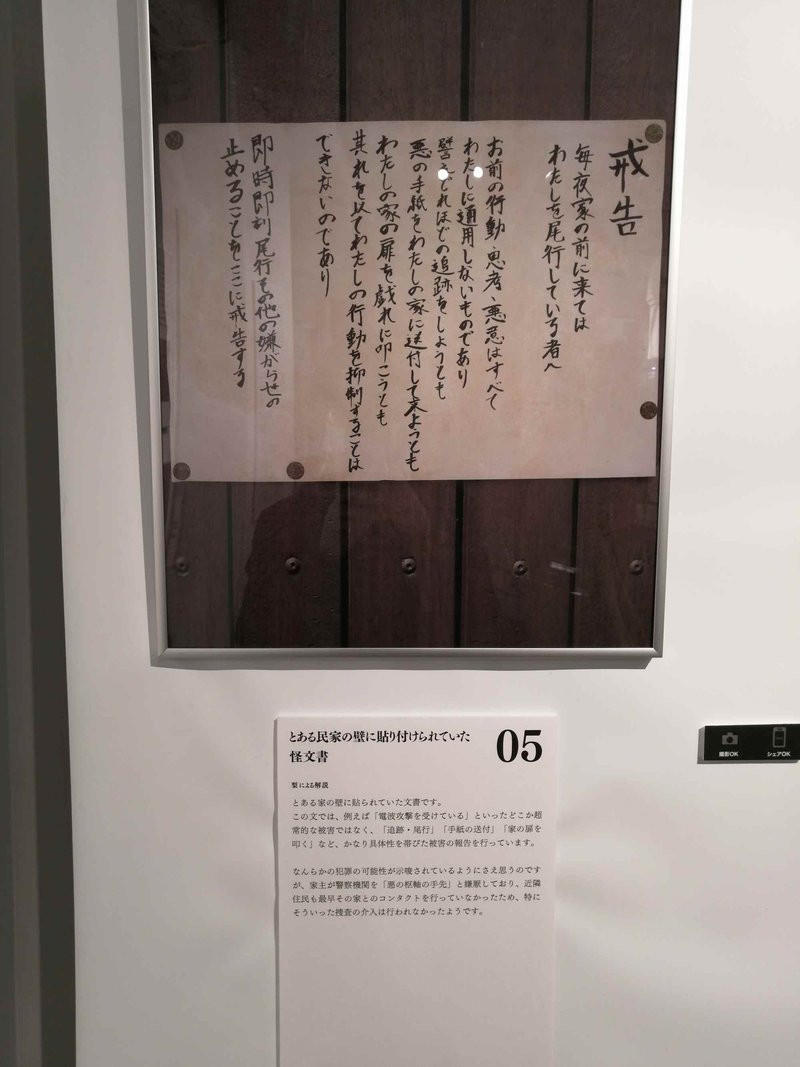 戒告
毎夜家の前に来ては
わたしを尾行している者へ
お前の行動、思考、悪意はすべて
わたしに通用しないものであり
譬えどれほどの追跡をしようとも
悪の手紙をわたしの家に送付して来ようとも
わたしの家の扉を戯れに叩こうとも
其れを以てわたしの行動を抑制することは
できないのであり
即時即刻尾行その他の嫌がらせの
止めることをここに戒告する
とある民家の壁に貼り付けられていた
怪文書
05
梨による解説
とある家の壁に貼られていた文書です。
この文では、例えば「電波攻撃を受けている」といったどこか超
常的な被害ではなく、「追跡・尾行」「手紙の送付」「家の扉を
叩く」など、かなり具体性を帯びた被害の報告を行っています。
なんらかの犯罪の可能性が示唆されているようにさえ思うのです
が、家主が警察機関を「悪の枢軸の手先」と嫌厭しており、近隣
住民も最早その家とのコンタクトを行っていなかったため、特に
そういった捜査の介入は行われなかったようです。
撮影OK
シェアOK